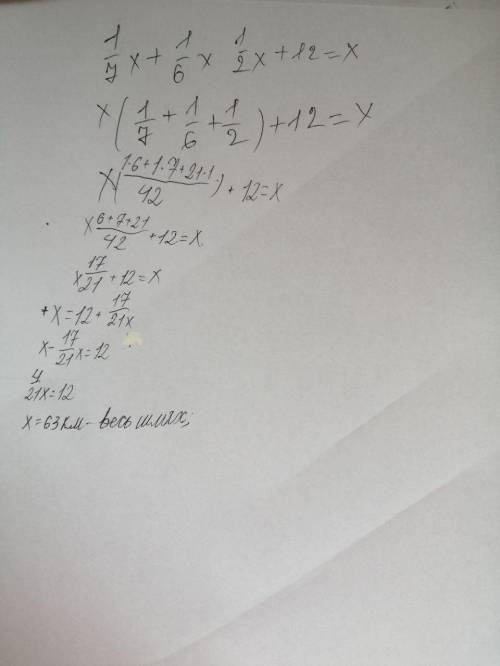 1/7 x + 1/6 x 1/2 x + 12 = x
x(1/7 + 1/6 + 1/2) + 12 = x
x(1·6+1·7+21·1/42) + 12 = x
x 6+7+21/42 + 12 = x
x 17/21 + 12 = x
+x = 12 + 17/21x
x - 17/21 x = 12
4/21x = 12
x = 63 км - весь шлях;